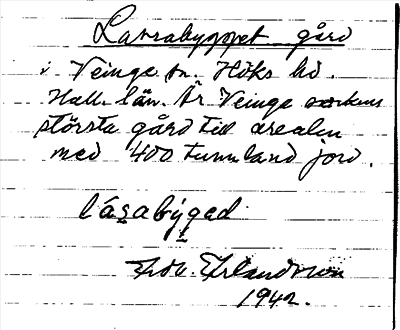 Larsabygget gård
i Veinge sn. Höks hd.
Hall. län. Är Veinge sockens
största gård till arealen
med 400 tunnland jord.
lásabýged
Erlandsson
1942.